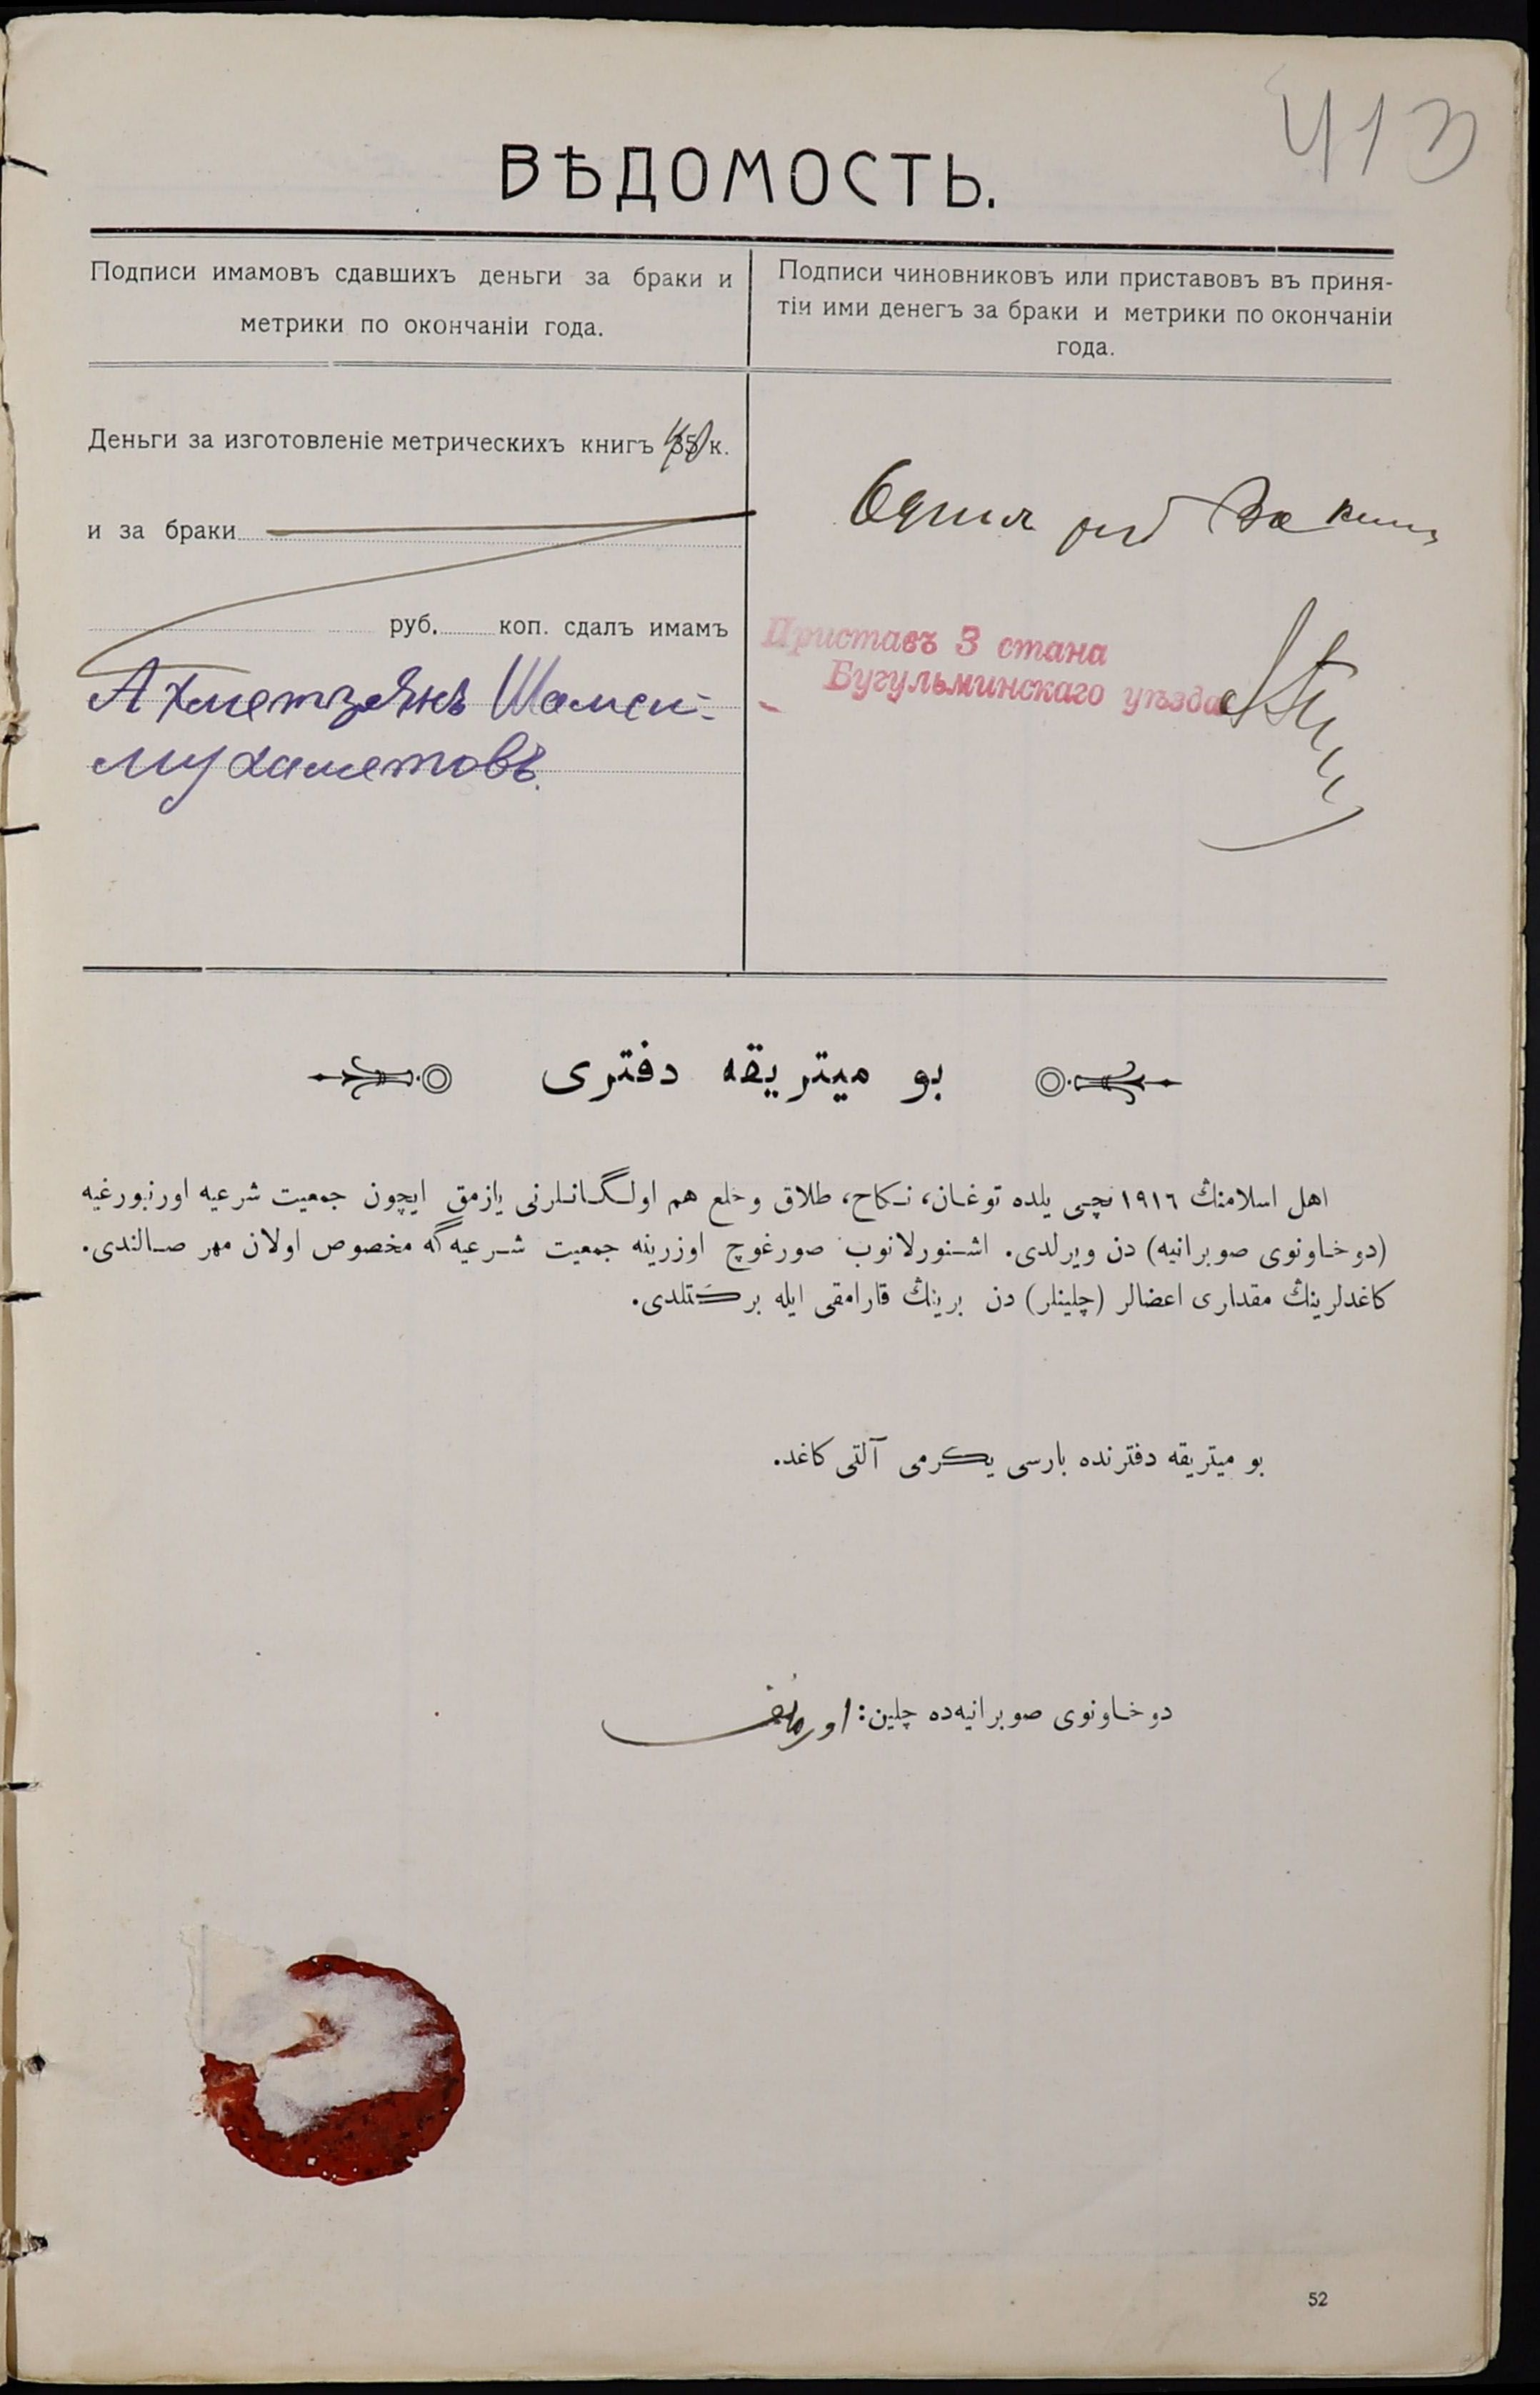 413
ВѢДОМОСТЬ.
Подписи имамовъ сдавшихъ деньги за браки и
метрики по окончаніи года.
Подписи чиновниковъ или приставовъ въ приня-
тіи ими денегъ за браки и метрики по окончаніи
года.
Деньги за изготовленіе метрическихъ книгъ 35 к.
и за браки
руб. коп. сдалъ имамъ
Ахметзянъ Шамси-
мухаметовъ.
Приставъ 3 стана
Бугульминскаго уѣзда
بو ميتريقه دفترى
اهل اسلامنڭ ١٩١٦ نچى يلده توغان، نكاح، طلاق وخلع هم اولگانلرنى يازمق ايچون جمعيت شرعيه اورنبورغيه
(دوخاونوى صوبرانيه) دن ويرلدى. اشنورلانوب صورغوچ اوزرينه جمعيت شرعيه گه مخصوص اولان مهر صالندى.
كاغدلرينڭ مقدارى اعضالر (چلينلر) دن برينڭ قارامقى ايله بركتلدى.
بو ميتريقه دفترنده بارسى يكرمى آلتى كاغد.
دوخاونوى صوبرانيه‌ده چلين:
52